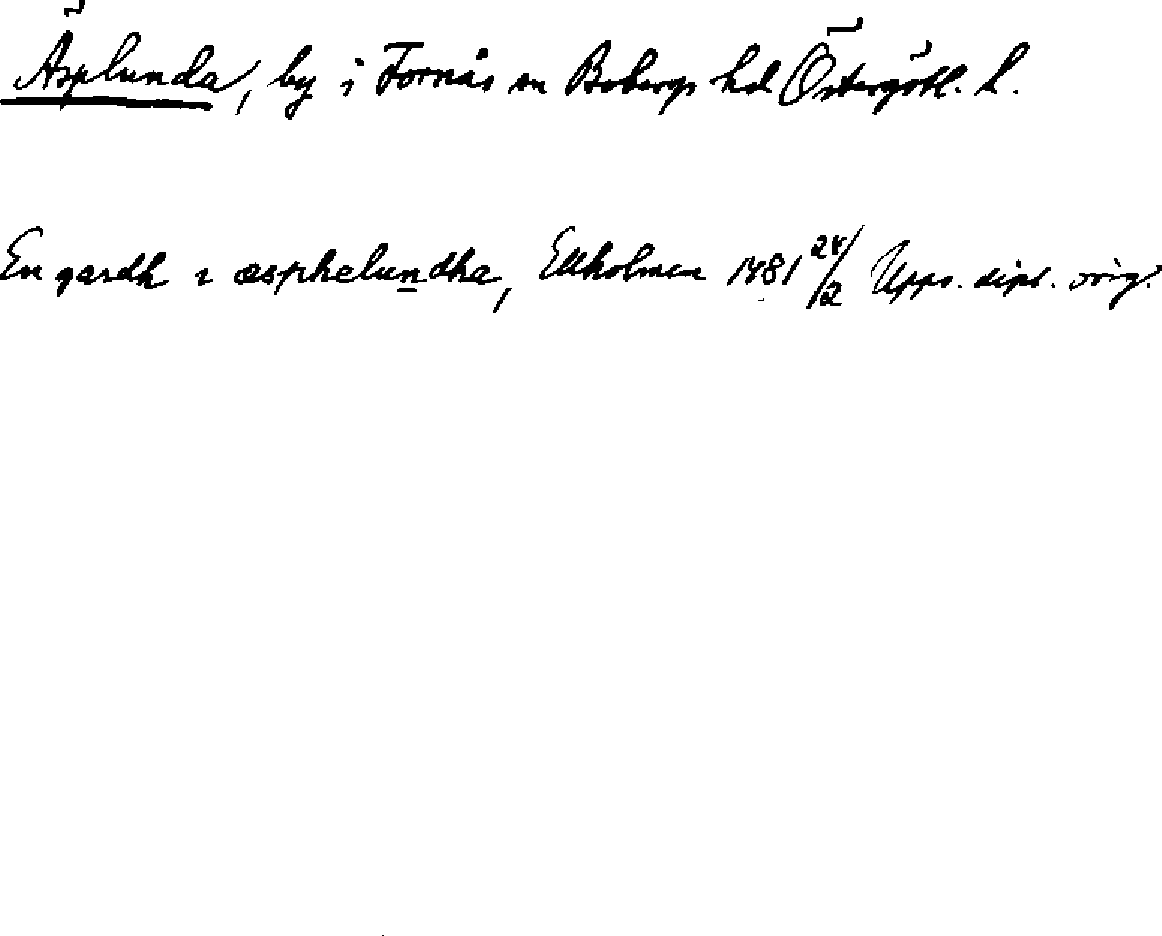 Äsplunda, by i Fornåsa sn Bobergs hd Östergötl. l.
En gardh i æsphelundha, Ekholmen 1481 24/2 Upps. dipl. orig.